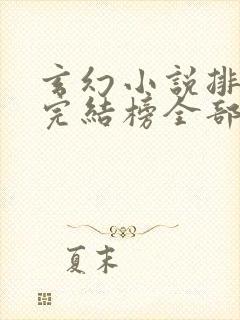 玄幻小說排
完結榜全部
夏末